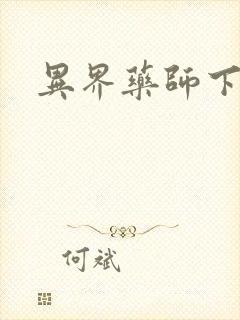 異界藥師下
何斌